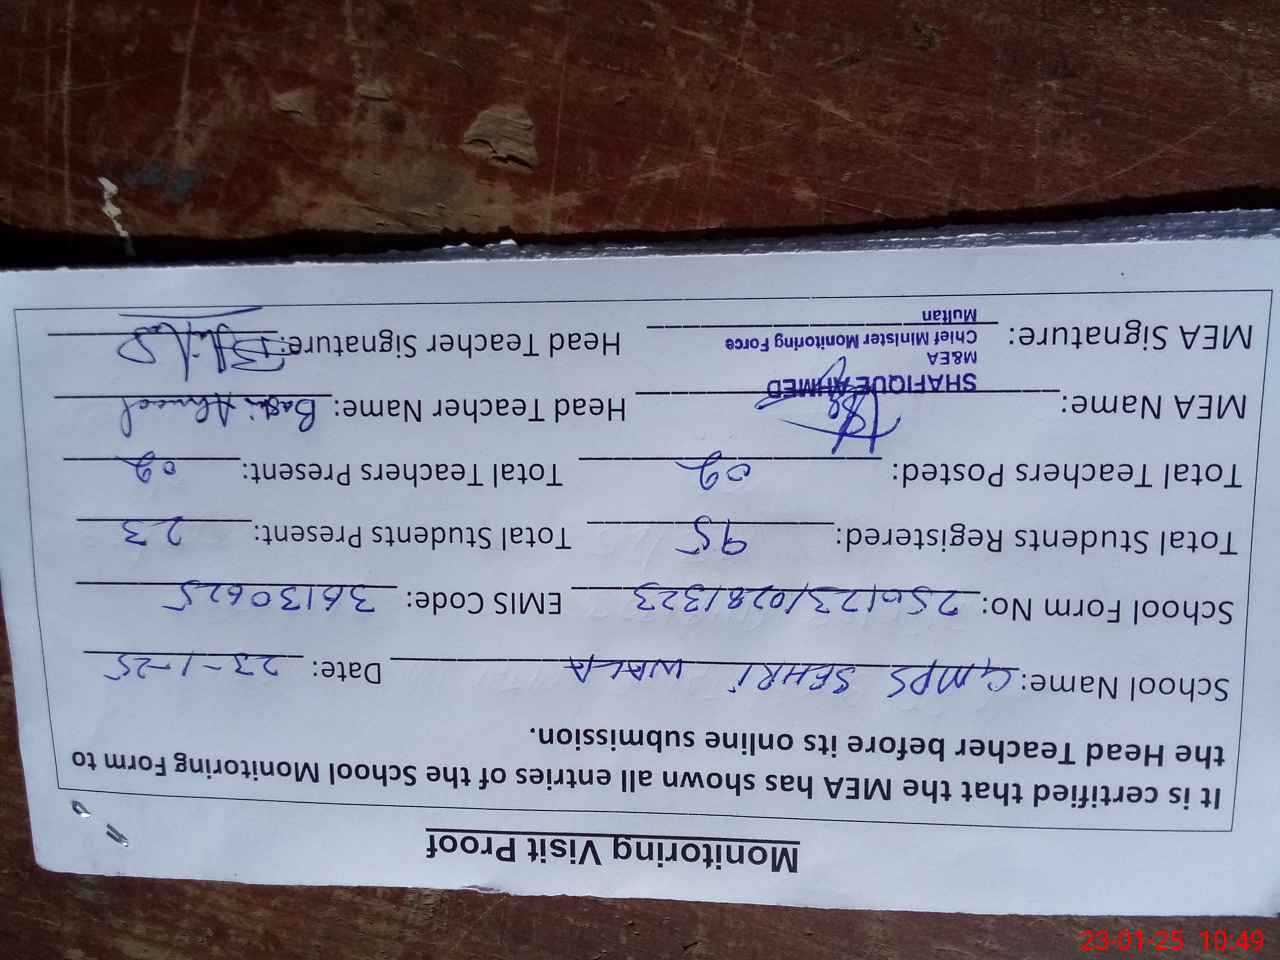 Monitoring Visit Proof
It is certified that the MEA has shown all entries of the School Monitoring Form to
the Head Teacher before its online submission.
School Name: GMPS SEHRI WALA Date: 23-1-25
School Form No: EMIS Code: 36130625
Total Students Registered: 95 Total Students Present: 23
Total Teachers Posted: 02 Total Teachers Present: 02
MEA Name: Head Teacher Name: Bashir Ahmed
SHAFIQUE AHMED
M&EA
Chief Minister Monitoring Force
Multan
MEA Signature: Head Teacher Signature:
23-01-25 10:49